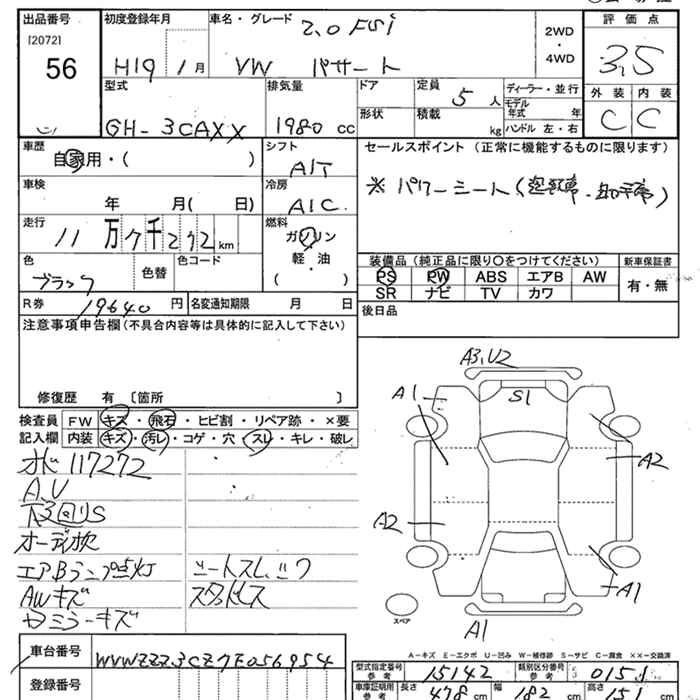 出品番号 初度登録年月 車名・グレード 2.0 FSi 評価点
[2072] 2WD
56 H19年1月 VW パサート ・ 3.5
4WD
型式 排気量 ドア 定員 5人 ディーラー・並行 外装 内装
GH-3CAXX 1980cc 形状 積載 kg モデル年式 年 C C
ハンドル 左・右
車歴 自家用・( ) シフト AIT セールスポイント (正常に機能するものに限ります)
車検 年 月( 日) 冷房 AIC ※パワーシート(運転席・助手席)
走行 11万7千272km 燃料 ガソリン
軽・油
( )
色 ブラック 色替 色コード 装備品 (純正品に限り○をつけてください) 新車保証書
PS PW ABS エアB AW 有・無
SR ナビ TV カワ
R券 19640円 名変通知期限 月 日 後日品
注意事項申告欄(不具合内容等は具体的に記入して下さい)
修復歴 有 [箇所 ]
検査員 FW キズ・飛石・ヒビ割・リペア跡・×要
記入欄 内装 キズ・汚レ・コゲ・穴・スレ・キレ・破レ
117272
A,U
下回りS
エアBランプ点灯
AWキズ スタッドレス
ミラーキズ
A3,U2
S1
A1
A2
A2
A1
A1
スペア
A-キズ E-エクボ U-凹み W-補修跡 S-サビ C-腐食 XX-交換済
車台番号 WVWZZZ3CZ7E056954 型式指定番号 参考 15142 類別区分番号 参考 0151
登録番号 車庫証明用 参考 長さ 478cm 幅 182cm 高さ 151cm